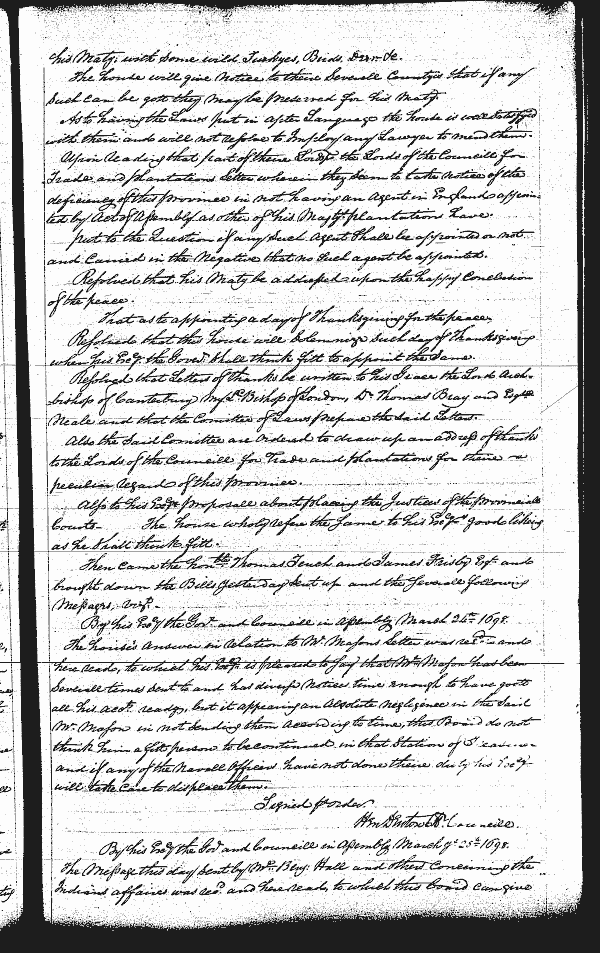 his Maty. with some wild Turkyes, Birds, Deer &c.
The house will give notice to their Severall Countys that if any
Such can be gott they may be preserved for his Maty.
As to having the Laws put in apter Language the house is well Satisfyd
with them and will not resolve to Imploy any Lawyer to mend them.
Upon Reading that part of their Lordps. the Lords of the Councill for
Trade and plantations Letter wherein they Seem to take notice of the
deficiency of this province in not having an Agent in England appoin-
ted by Act of Assembly as other of his Matys. plantations have.
put to the Question if any Such Agent Shall be appointed or not
and Carried in the Negative that no Such agent be appointed.
Resolved that his Maty be addressed upon the happy Conclusion
of the peace.
That as to appointing a day of Thanksgiving for the peace,
Resolved that this house will Solemnize Such day of Thanksgiving
when his Excy. the Govr. Shall think fitt to appoint the Same.
Resolved that Letters of thanks be written to his Grace the Lord Arch-
bishop of Canterbury My Ld. Bishop of London, Dr. Thomas Bray and
Neale and that the Comittee of Laws prepare the said Letters.
Also the Said Comittee are Ordered to draw up an address of thanks
to the Lords of the Councill for Trade and plantations for their
peculiar regard of this province.
Also to his Excys. proposall about placing the Justices of the provinciall
Courts. The house wholy refers the Same to his Excys. good liking
as he Shall think fitt.
Then came the honble. Thomas Tench and James Frisby Esqr. and
bought down the Bills yesterday Sent up and the Severall following
Messages, vizt.
By his Excy the Govr. and Councill in Assembly March 24th 1698.
The houses answer in relation to Mr. Masons Letter was recd. and
here read, to which his Excy. is pleased to Say that Mr. Mason has been
Severall times Sent to and has diverse Notices time enough to have gott
all his acct. ready, but it appearing an Absolute negligence in the said
Mr. Mason in not Sending them According to time, this Board do not
think him a fitt person to be continued in that Station of
and if any of the Navall Officers have not done their duty his Excy
will take Care to displace them.
Signed p order.
Hen Denton Cl. Councill.
By his Excy the Govr. and Councill in Assembly March ye 25th 1698.
The Message this day Sent by Mr. Benj. Hall and others Concerning the
Indians affaires was recd. and here read, to which this board can give